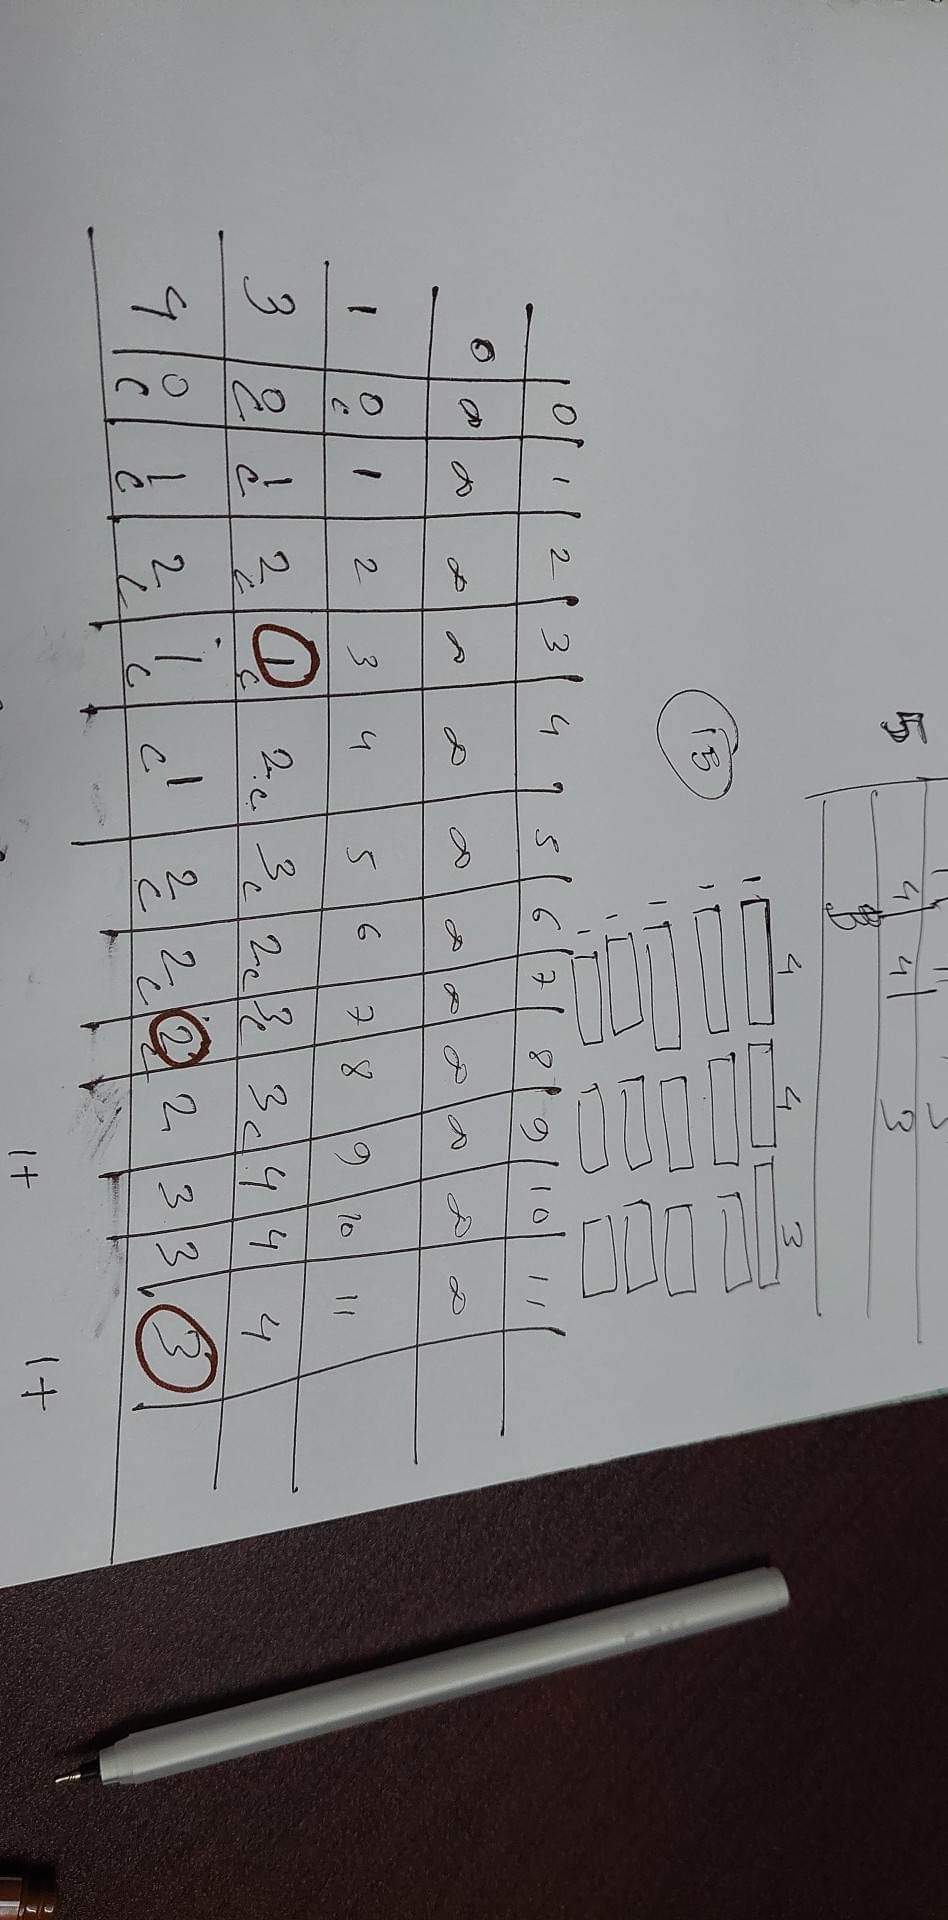 5
4 4 3
13
4 4 3
0 1 2 3 4 5 6 7 8 9 10 11
0 ∞ ∞ ∞ ∞ ∞ ∞ ∞ ∞ ∞ ∞ ∞ ∞
1 0c 1 2 3 4 5 6 7 8 9 10 11
3 0c 1c 2c 1c 2c 3c 2c 3c 3c 4 4 4
4 0c 1c 2c 1c c1 2c 2c 2c 2 3 3 3
1+ 1+